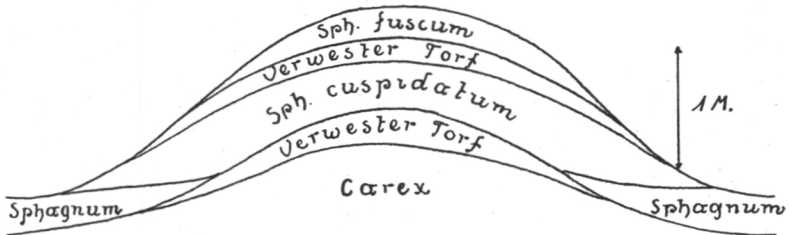 Sph. fuscum
Verwester Torf
1 M.
Sph. cuspidatum
Verwester Torf
Carex
Sphagnum
Sphagnum